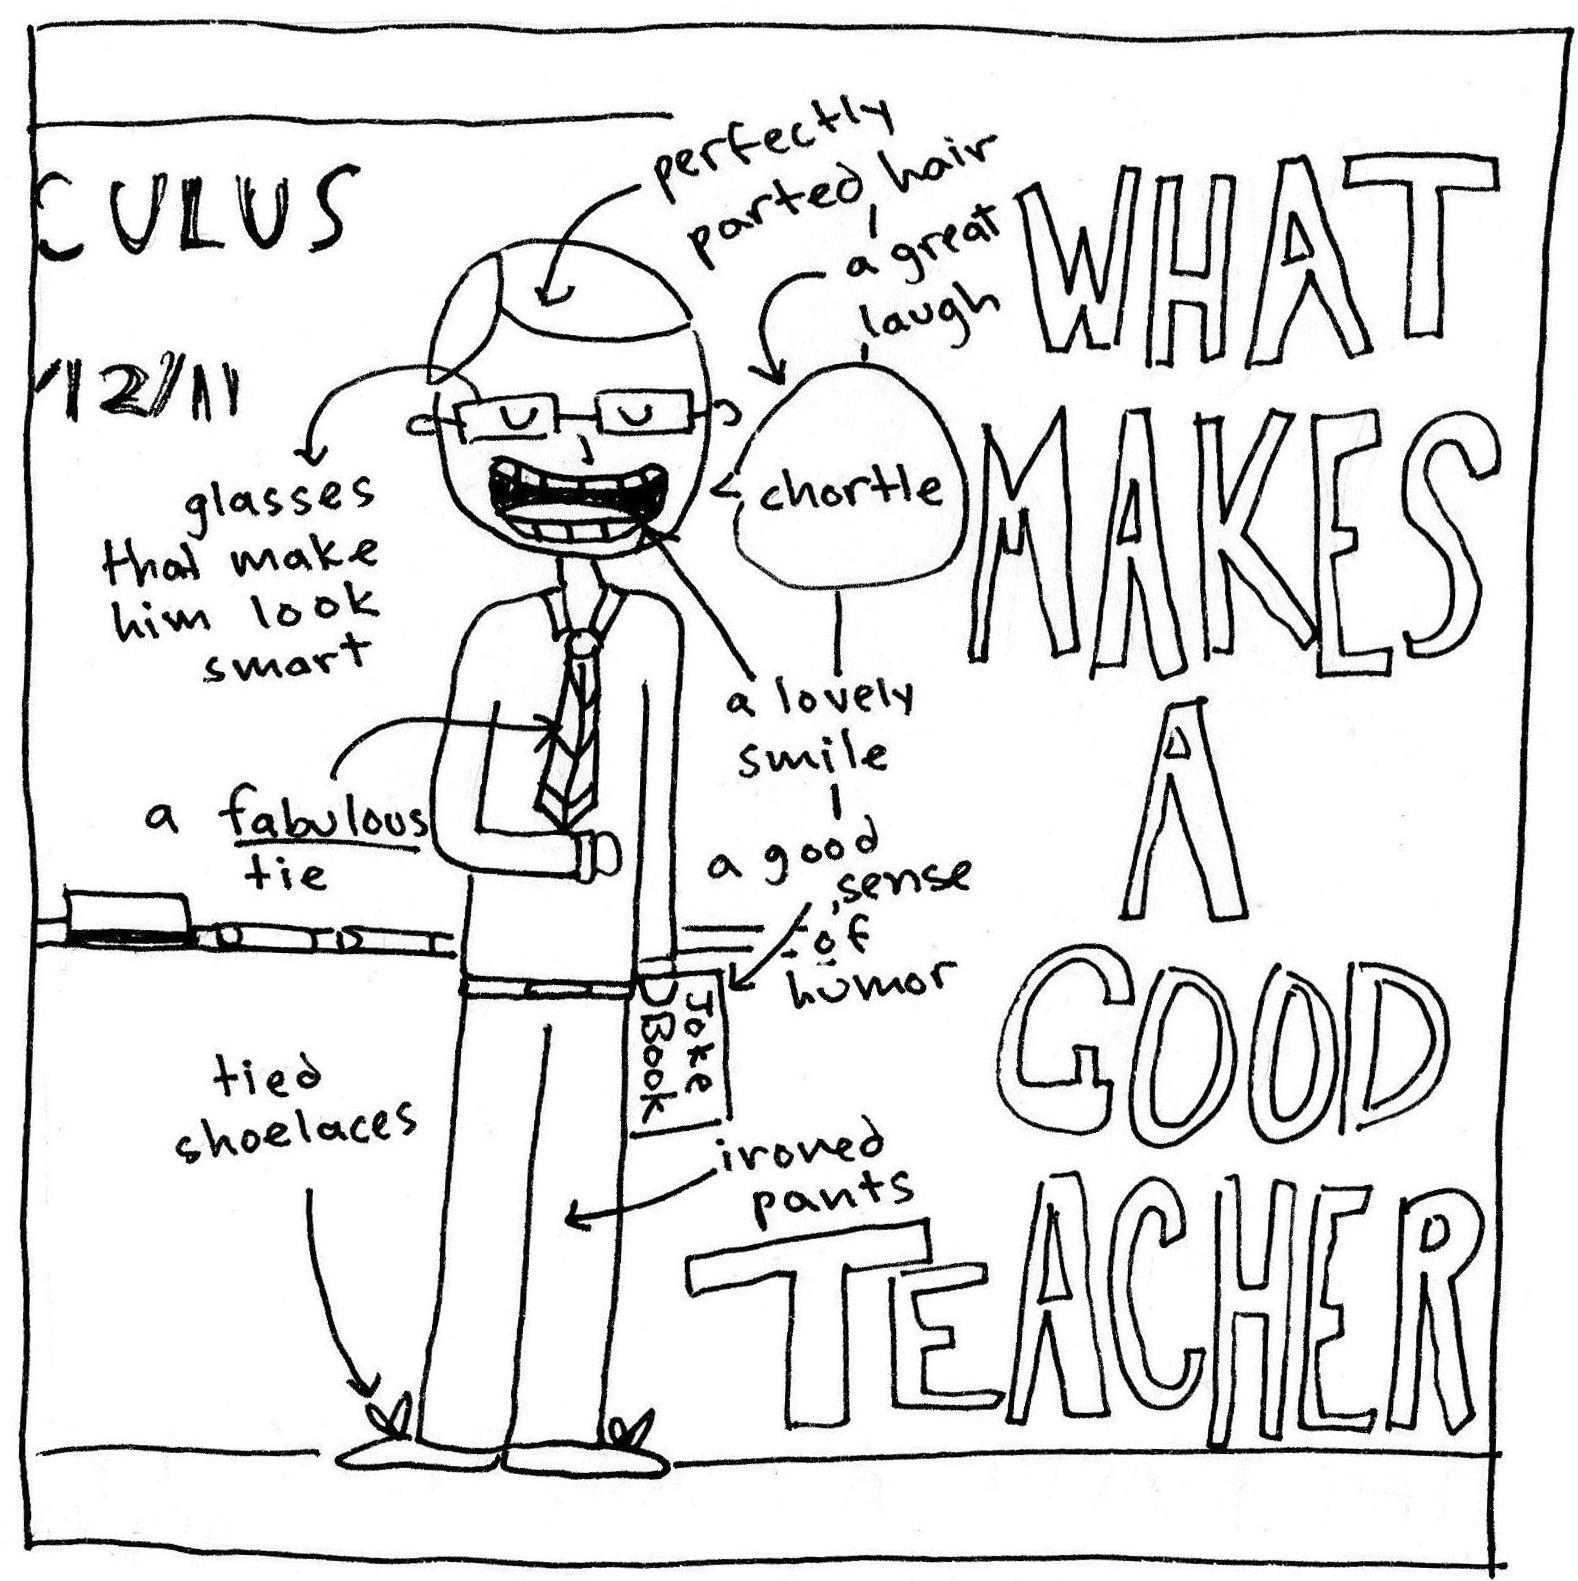 CULUS
/12/11
perfectly
parted hair
a great
laugh
chortle
glasses
that make
him look
smart
a lovely
smile
a fabulous
tie
a good
sense
of
humor
Joke
Book
tied
shoelaces
ironed
pants
WHAT
MAKES
A
GOOD
TEACHER